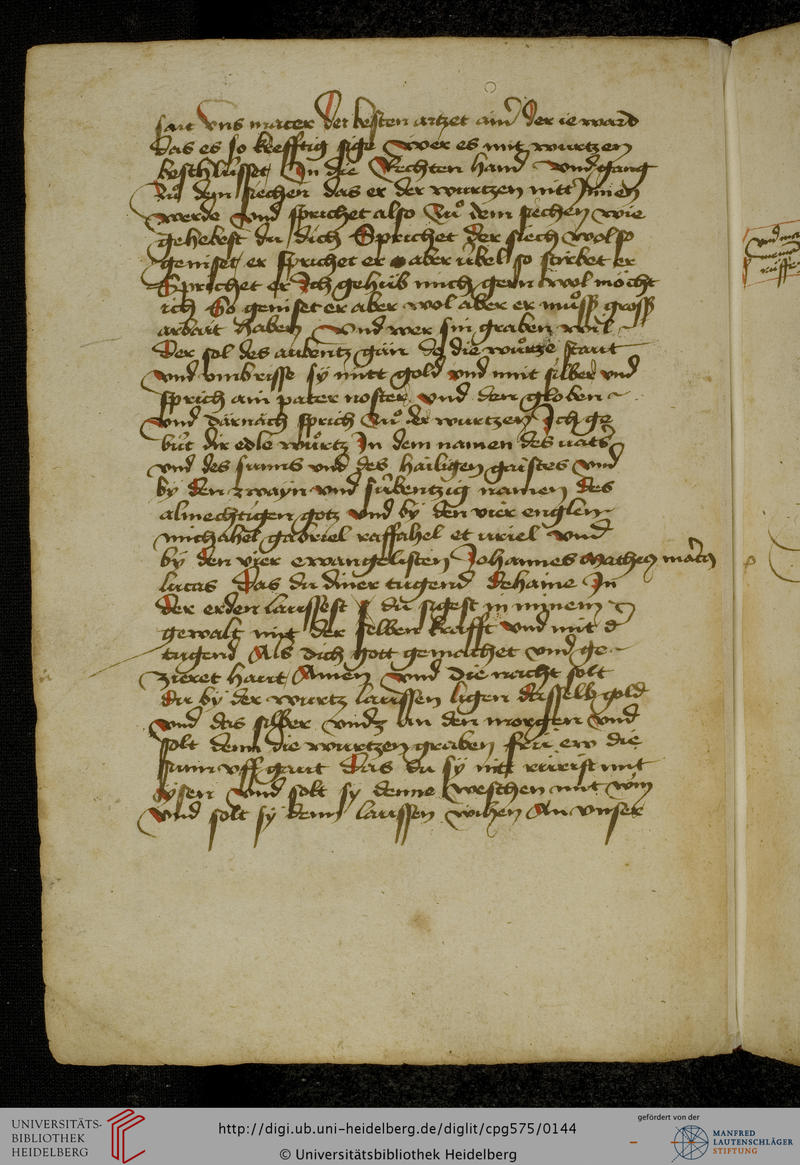 sait vns macer der besten artzet ainer der ie ward
das es so krefftig sige Wer es mit wurtzen
beschlússet In die Rechten hand vnd gang
Zů dem siechen das er der wurtzen nitt Innen
werde vnd sprichet also Zů dem siechen wie
gehebest du dich Sprichet der siech wol so
geniset er sprichet er aber úbel so stirbet er
Sprichet er Ich gehůb mich gern wol möcht
ich So geniset er aber wol aber er můsß grosß
arbait haben Vnd wer sin graben wil
Der sol des aubentz gän da die wůrtze staut
vnd vmbrisse sÿ mitt gold vnd mit silber vnd
sprich ain pater noster vnd den globen
vnd därnäch sprich Zů der wurtzen Ich ge
bút dir edle wůrtz In dem namen des uats
vnd des sunns vnd des hailigen gaistes vnd
by den zwayn vnd súbentzig namen des
almechtigen gotz vnd by den vier englen
michahel gabriel raffahel et uriel vnd
by den vier ewangelisten Johannes Matheus marcus
lucas das du diner tugend dehaine In
der erden laussest du sigest in minem
gewalt mit der selben krafft vnd mit der
tugend Als dich gott gemachet vnd ge
zieret haut Amen vnd die nacht solt
du by der wurtz laussen ligen dasselb gold
vnd das silber vntz an den morgen vnd
solt denn die wurtzen graben frú ew die
sunn vff gaut das du sÿ nitt rúrist mit
ÿsen vnd solt sÿ denne weschen mit win
vnd solt sÿ denn laussen wihen An vnser
vnd
UNIVERSITÄTS-
BIBLIOTHEK
HEIDELBERG
http://digi.ub.uni-heidelberg.de/diglit/cpg575/0144
© Universitätsbibliothek Heidelberg
gefördert von der
MANFRED
LAUTENSCHLÄGER
STIFTUNG